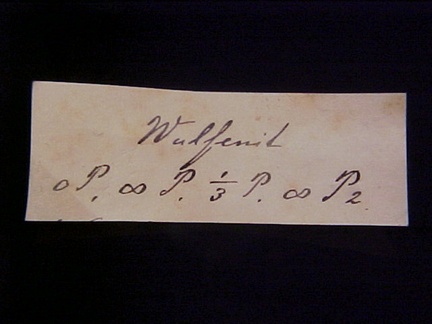 Wulfenit
oP. ∞ P. 1/3 P. ∞ P2.